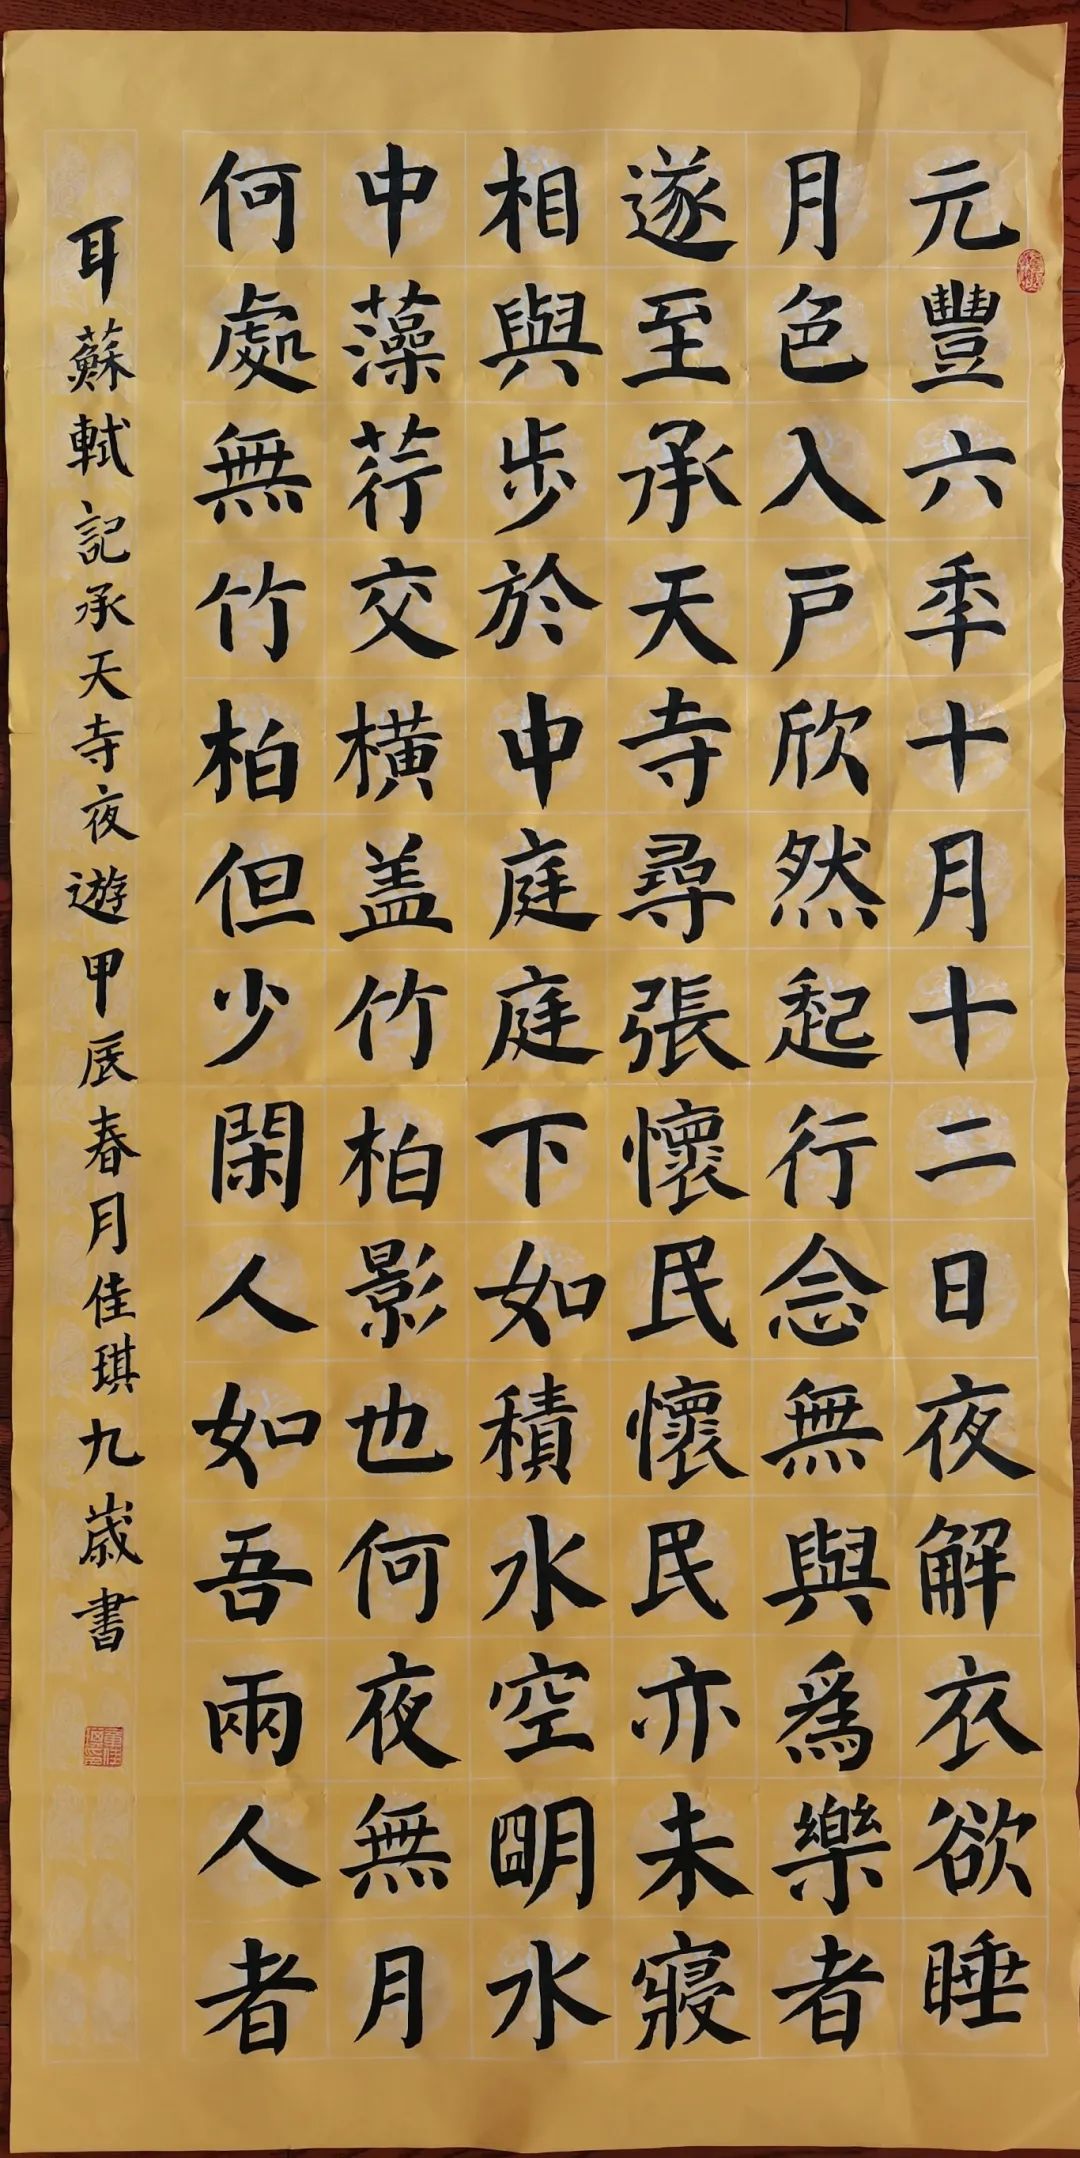 元豐六秊十月十二日夜解衣欲睡
月色入戶欣然起行念無與爲樂者
遂至承天寺尋張懷民懷民亦未寢
相與步於中庭庭下如積水空明水
中藻荇交橫盖竹柏影也何夜無月
何處無竹柏但少閑人如吾兩人者
耳蘇軾記承天寺夜遊甲辰春月佳琪九歲書